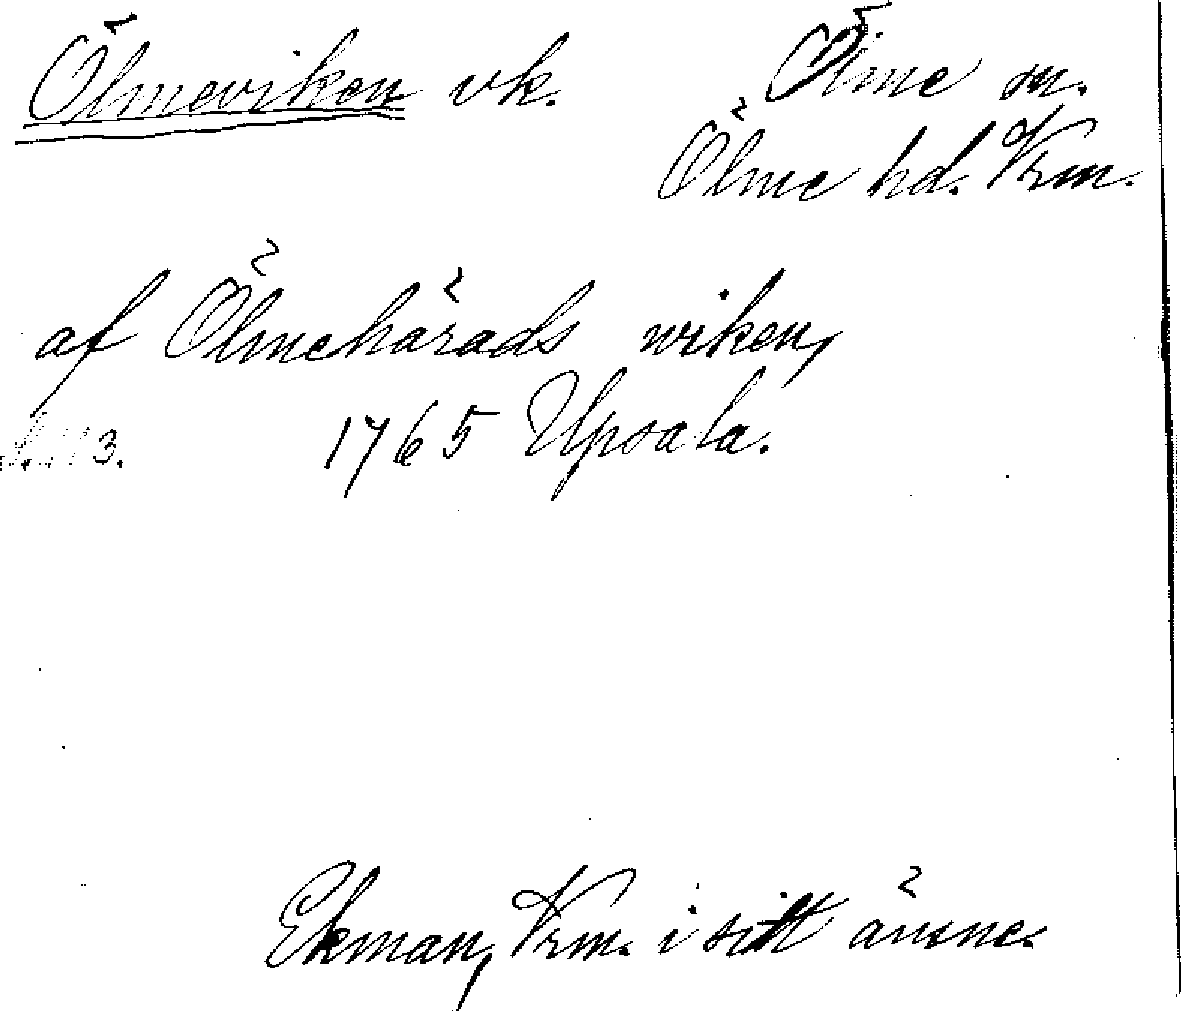 Ölmeviken vk. Ölme sn.
Ölme hd. Vrm.
af Ölmehärads wiken,
3. 1765 Upsala.
Ekman, Vrm. i sitt ämne.